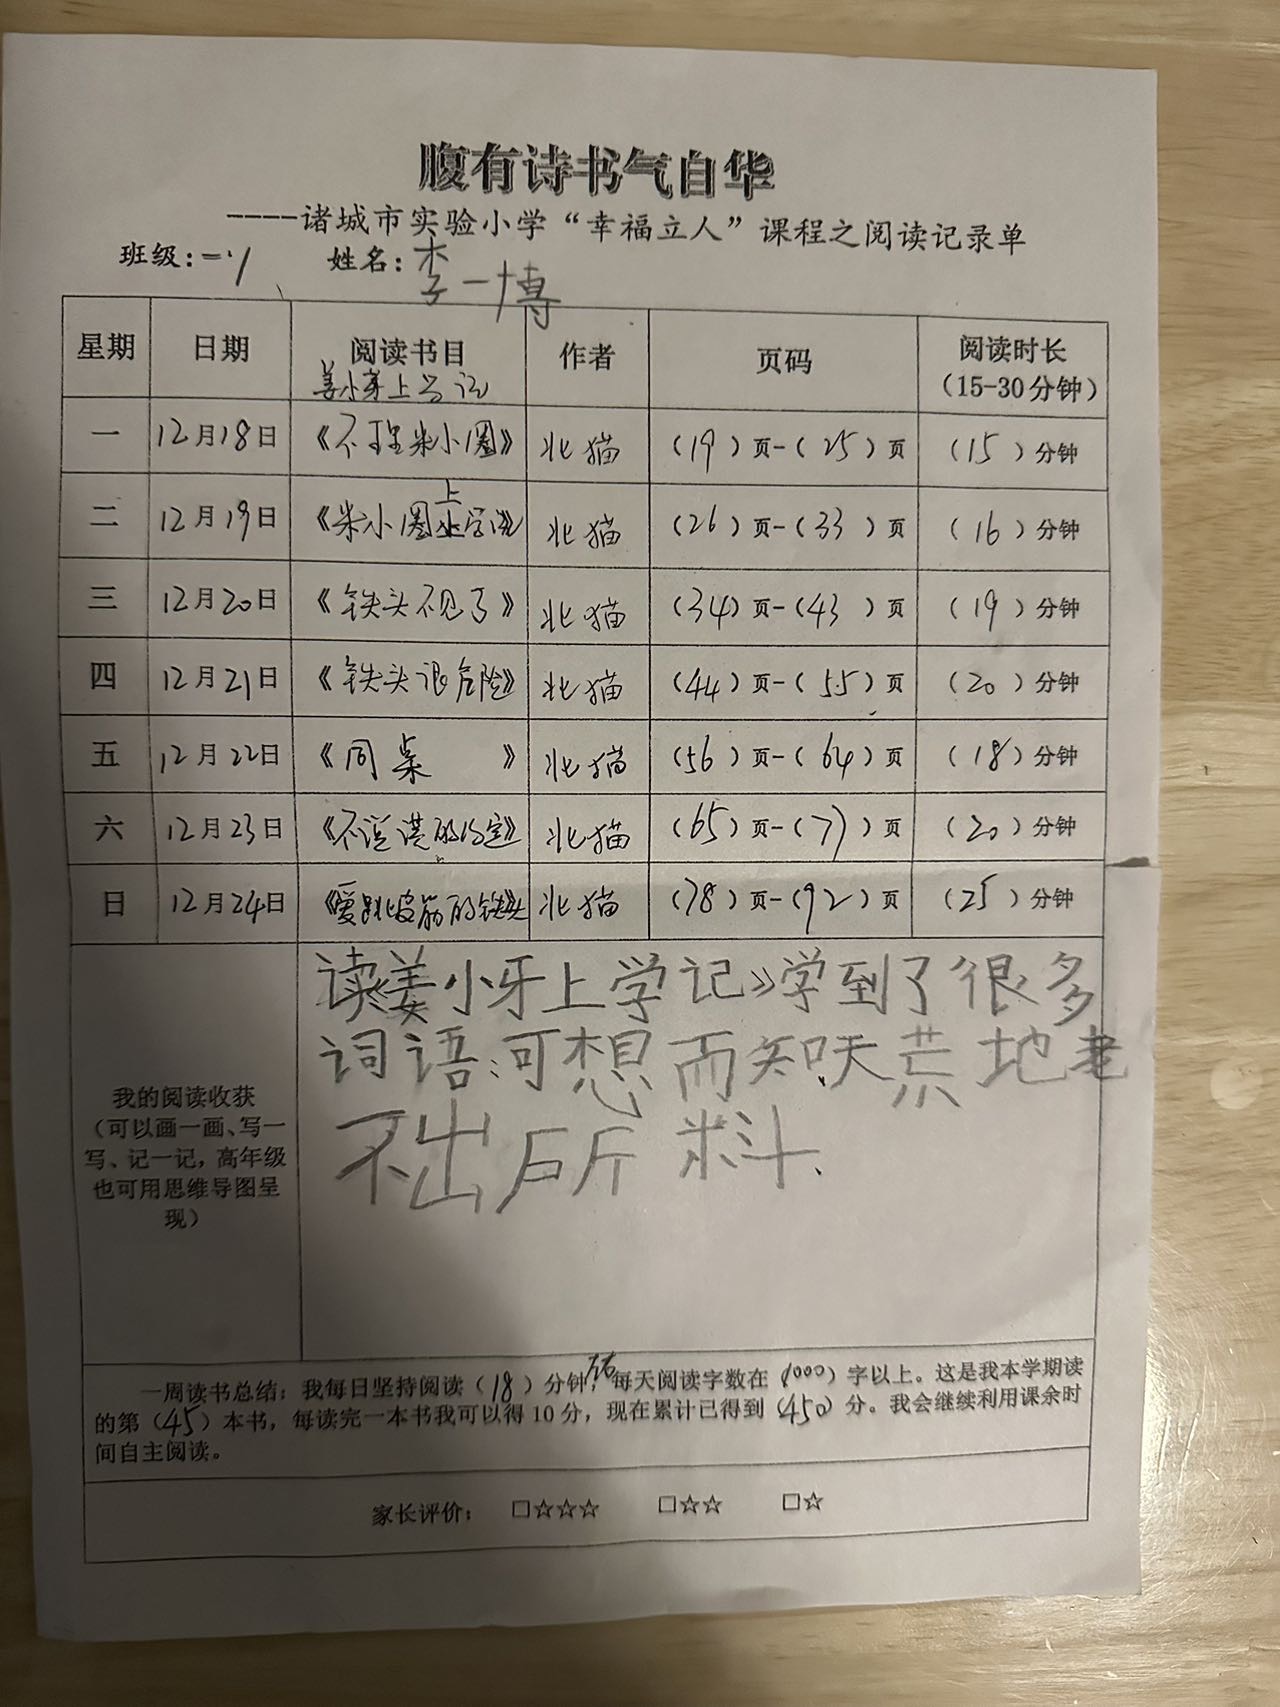 腹有诗书气自华
----诸城市实验小学“幸福立人”课程之阅读记录单
班级：一·1 姓名：李一博
星期 日期 阅读书目 作者 页码 阅读时长
姜小牙上学记 （15-30分钟）
一 12月18日 《不理米小圈》 北猫 （19）页-（25）页 （15）分钟
二 12月19日 《米小圈上学说》 北猫 （26）页-（33）页 （16）分钟
三 12月20日 《铁头不见了》 北猫 （34）页-（43）页 （19）分钟
四 12月21日 《铁头很危险》 北猫 （44）页-（55）页 （20）分钟
五 12月22日 《同桌》 北猫 （56）页-（64）页 （18）分钟
六 12月23日 《不说谎的约定》 北猫 （65）页-（77）页 （20）分钟
日 12月24日 《爱跳皮筋的铁头》 北猫 （78）页-（92）页 （25）分钟
读《姜小牙上学记》学到了很多
词语：可想而知、天荒地老
不出所料.
我的阅读收获
（可以画一画、写一
写、记一记，高年级
也可用思维导图呈
现）
一周读书总结：我每日坚持阅读（18）分钟，每天阅读字数在（1000）字以上。这是我本学期读
的第（45）本书，每读完一本书我可以得10分，现在累计已得到（450）分。我会继续利用课余时
间自主阅读。
家长评价： □☆☆☆ □☆☆ □☆